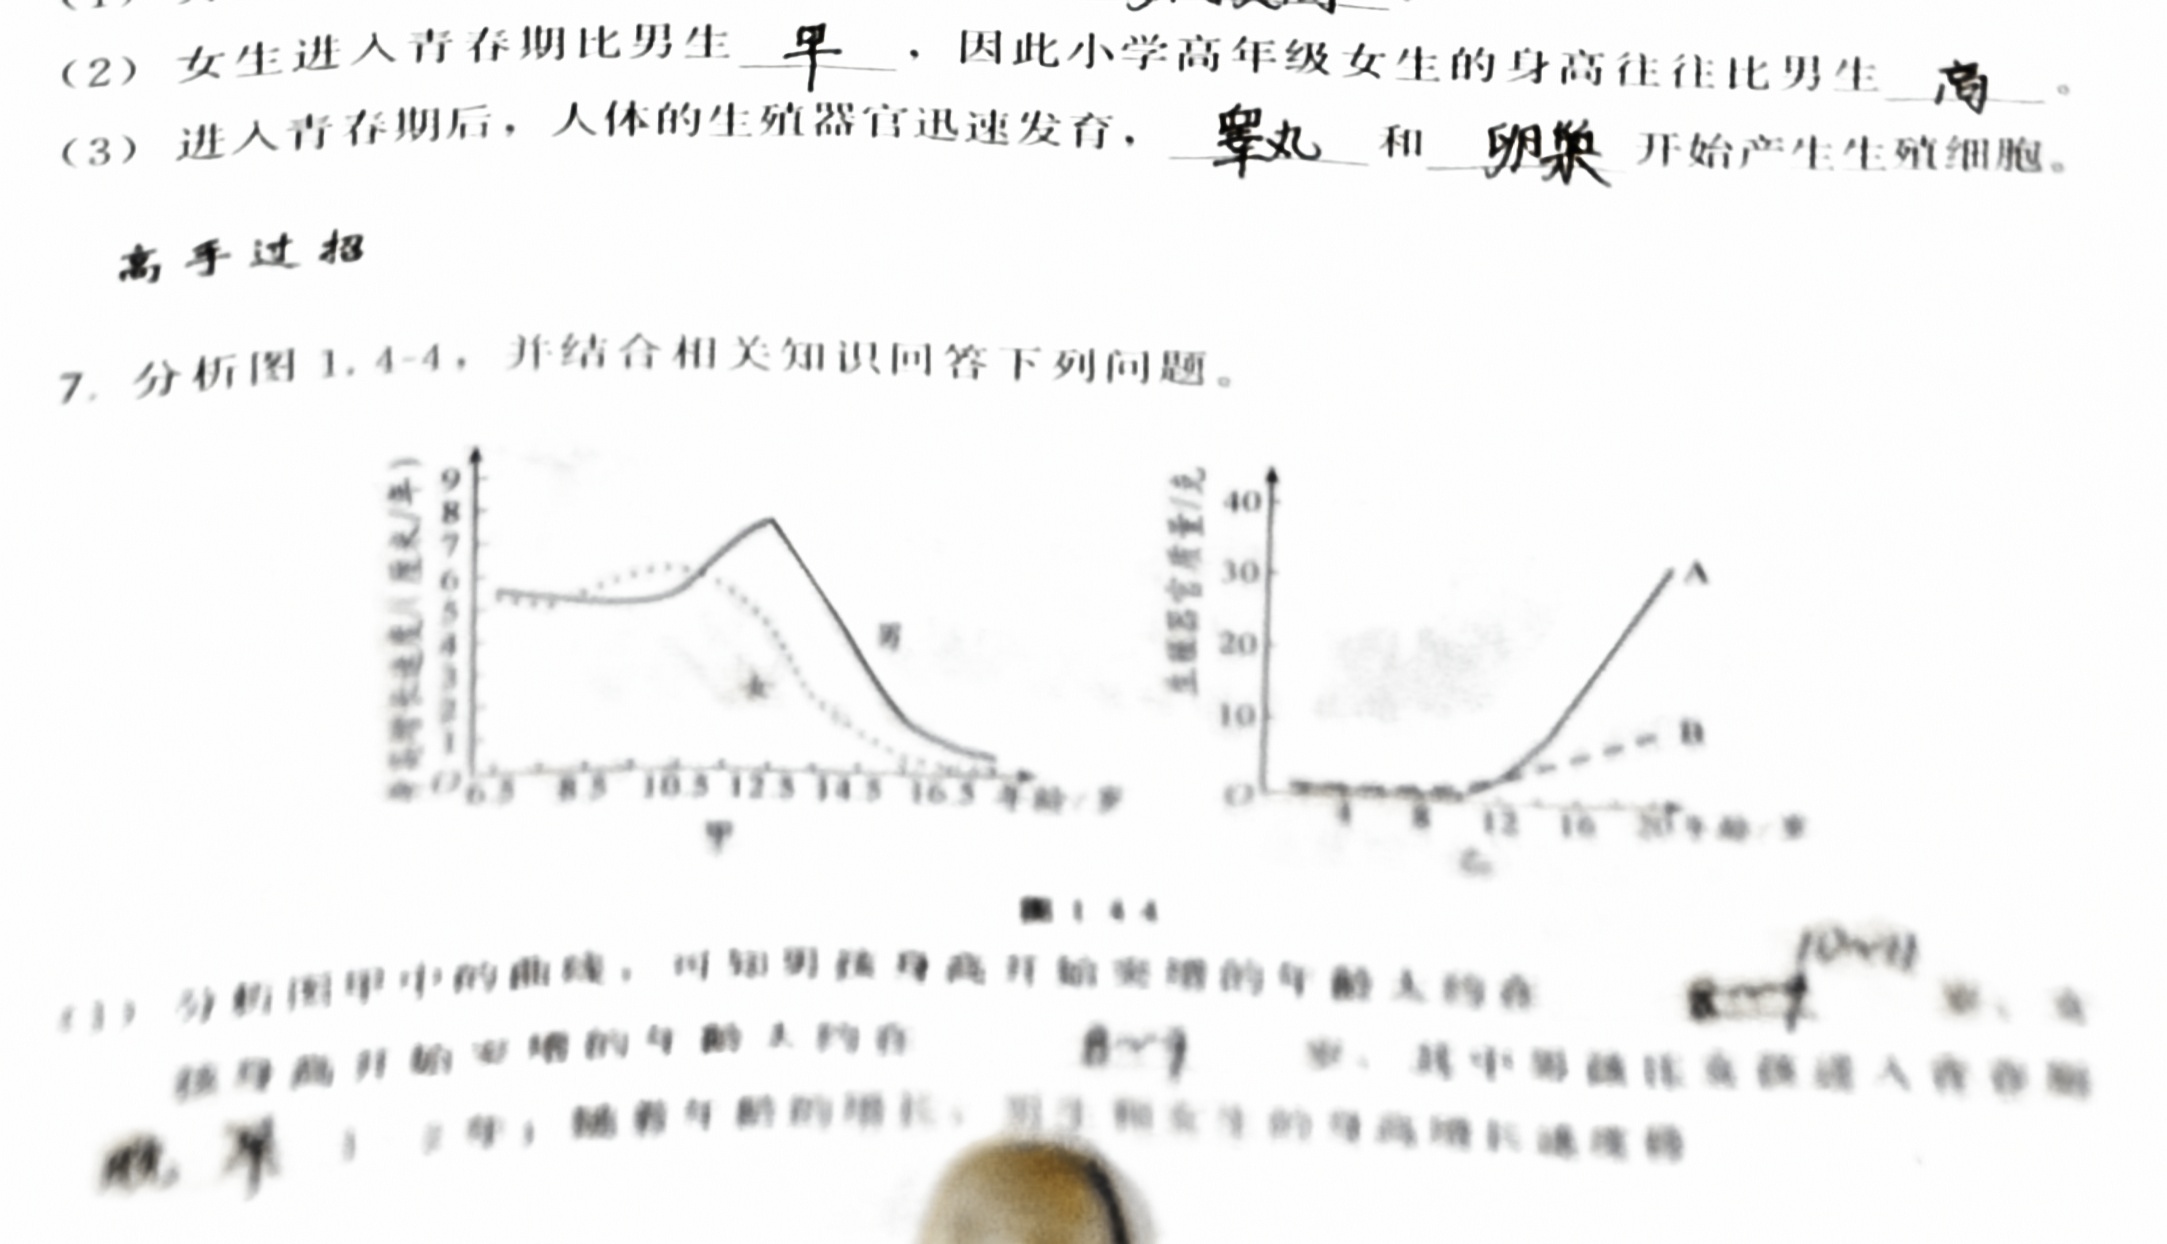 (2) 女生进入青春期比男生 早 ，因此小学高年级女生的身高往往比男生 高 。
(3) 进入青春期后，人体的生殖器官迅速发育， 睾丸 和 卵巢 开始产生生殖细胞。
高手过招
7. 分析图 1.4-4，并结合相关知识回答下列问题。
身高增长速度/(厘米/年)
9
8
7
6
5
4
3
2
1
O
6.5 8.5 10.5 12.5 14.5 16.5 年龄/岁
男
女
甲
生殖器官质量/克
40
30
20
10
O
4 8 12 16 20 年龄/岁
A
B
乙
图 1.4-4
10~11
(1) 分析图甲中的曲线，可知男孩身高开始突增的年龄大约在 岁，女
孩身高开始突增的年龄大约在 8~9 岁，其中男孩比女孩进入青春期
晚 1 2 年；随着年龄的增长，男生和女生的身高增长速度将